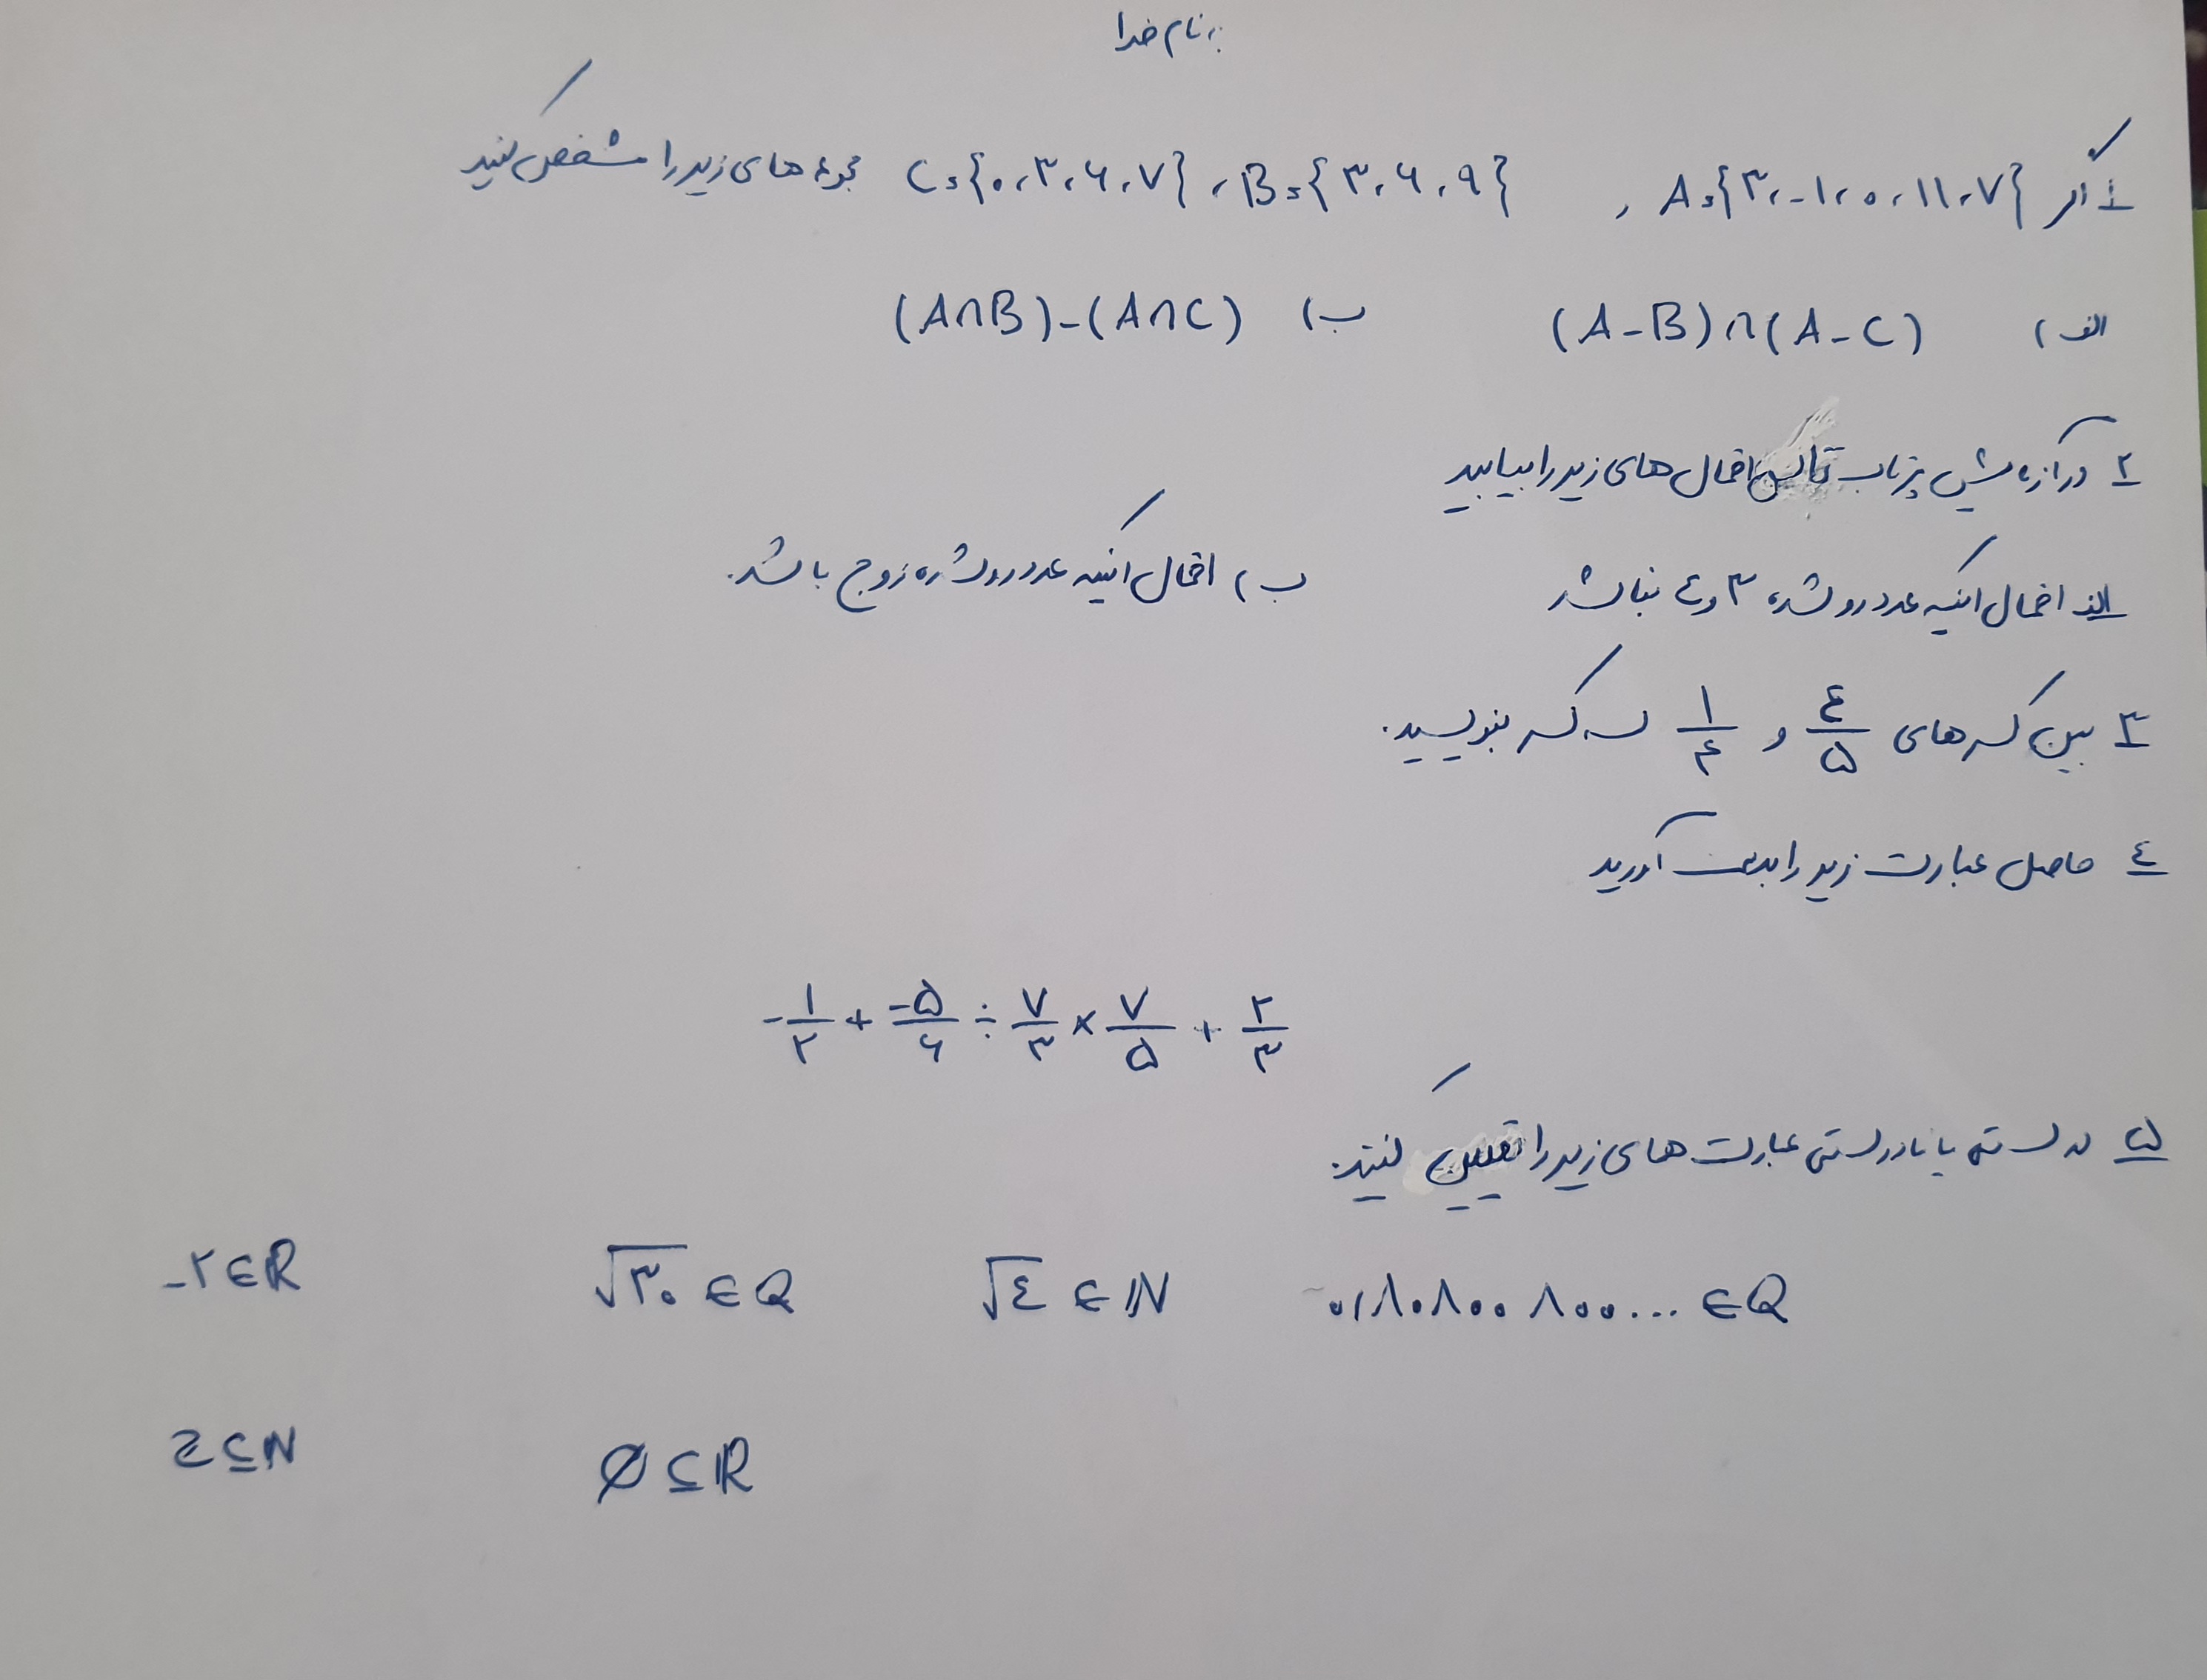 بنام خدا
۱ اگر A={۳، -۱، ۰، ۱۱، ۷} ، B={۳، ۶، ۹} ، C={۰، ۳، ۶، ۷} مجموعه های زیر را مشخص کنید
الف) (A-B)∩(A-C) ب) (A∩B)-(A∩C)
۲ در آزمایش پرتاب تاس احتمال های زیر را بیابید
الف احتمال اینکه عدد رو شده ۳ و ٤ نباشد ب) احتمال اینکه عدد رو شده زوج باشد.
۳ بین کسرهای ٤/۵ و ۱/۴ سه کسر بنویسید.
٤ حاصل عبارت زیر را بدست آورید
-۱/۲ + -۵/۶ ÷ ۷/۳ × ۷/۵ + ۲/۳
۵ درستی یا نادرستی عبارت های زیر را تعیین کنید.
-۲∈R √۳۰∈Q √٤∈N ۰/۸۰۸۰۰۸۰۰... ∈Q
Z⊆N ∅⊆R